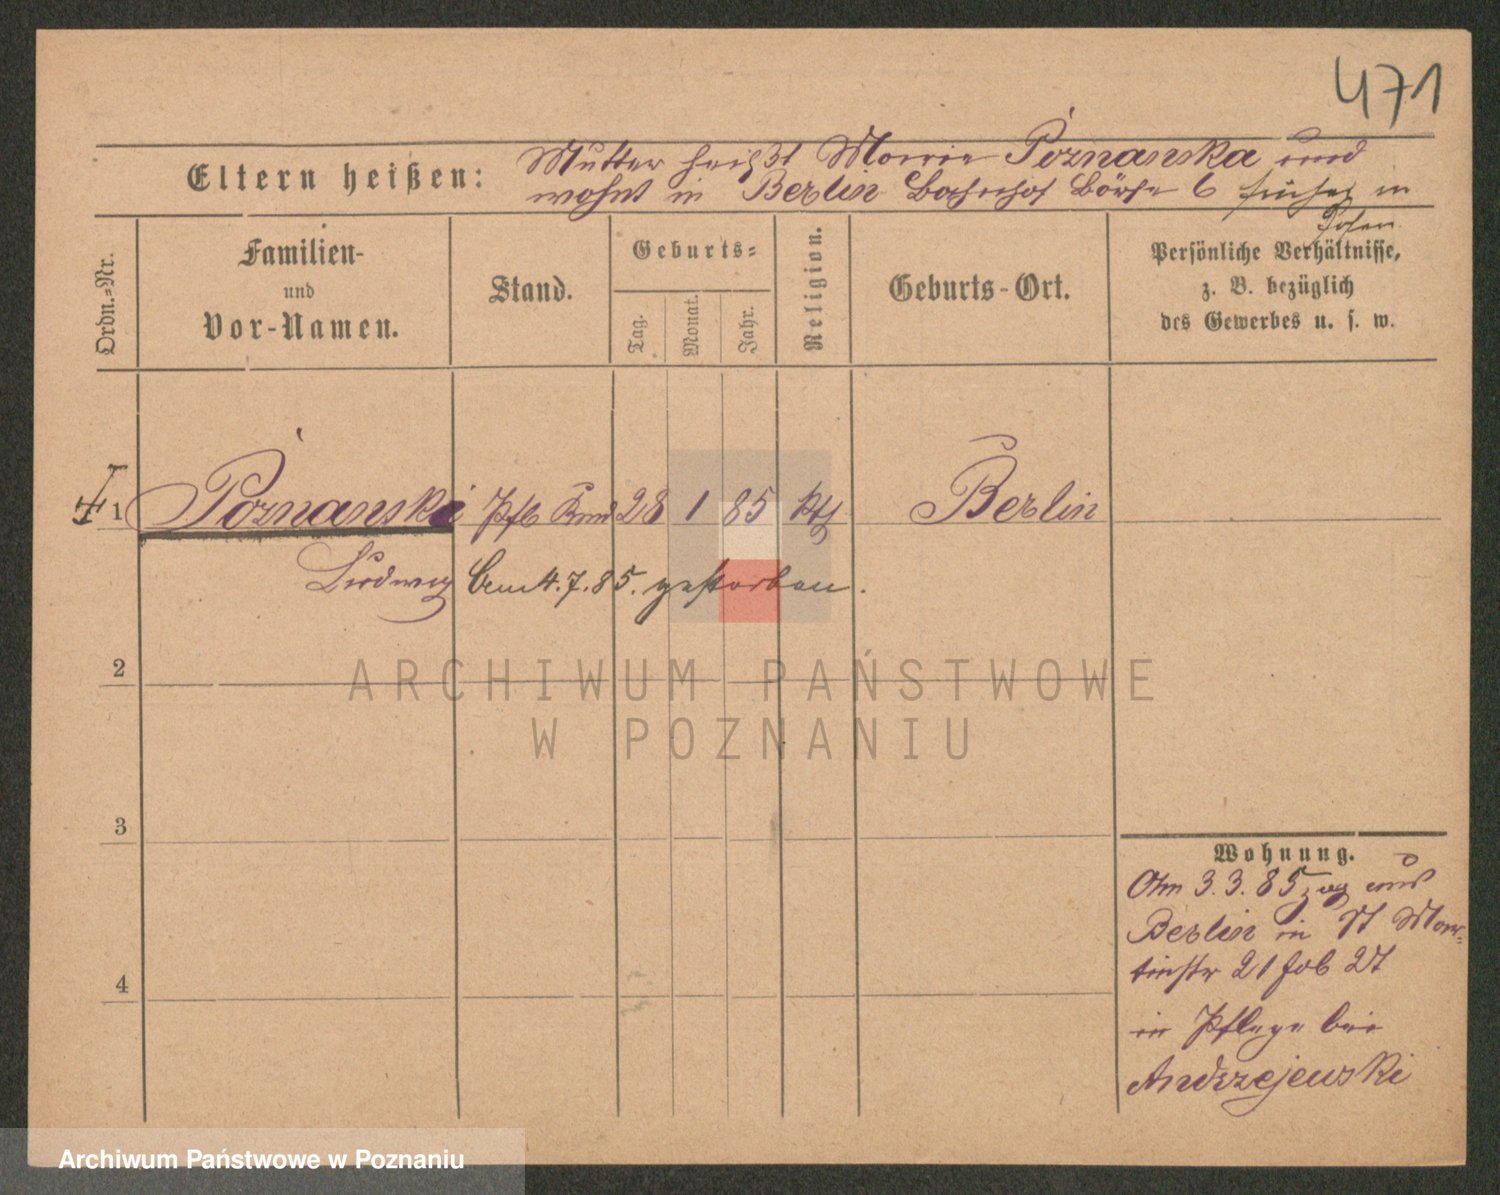 471
Eltern heißen: Mutter heißt Marie Poznanska und
wohnt in Berlin Bahnhof Börse 6 früher in
Posen
Ordn.=Nr.
Familien-
und
Vor-Namen.
Stand.
Geburts=
Tag.
Monat.
Jahr.
Religion.
Geburts-Ort.
Persönliche Verhältnisse,
z. B. bezüglich
des Gewerbes u. s. w.
1 Poznanski Pfl Kind 28 1 85 kth Berlin
Ludwig am 4.7.85. gestorben.
2
ARCHIWUM PAŃSTWOWE
W POZNANIU
3
4
Wohnung.
Am 3.3.85 zug aus
Berlin in St Mar=
tinstr 21
in Pflege bei
Andrzejewski
Archiwum Państwowe w Poznaniu